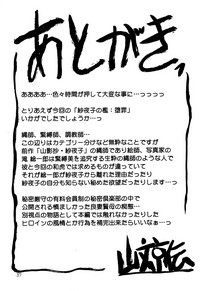 あとがき、
ああああ…色々時間が押して大変な事に…っっっっ
とりあえず今回の「紗夜子の檻:堕罪」
いかがでしたでしょうか…っっ
縄師、緊縛師、調教師…
この辺りはカテゴリー分けなど無粋なことですが
前作「山影抄・紗夜子」の縄師であり絵師、写真家の
滝 統一郎は緊縛美を追究する生粋の縄師のような人で
彼と今回の和虎では求めるものが違っていて
それが統一郎が紗夜子から離れた理由だったり
紗夜子の自分も知らない秘めた欲望だったりします…っ
秘密厳守の有料会員制の秘密倶楽部の中で
公開される慎ましかった良妻賢母の痴態…
別視点の物語として本編では触れなかったりした
ヒロインの風情とか行為を補完出来たらいいなぁ…っ
31